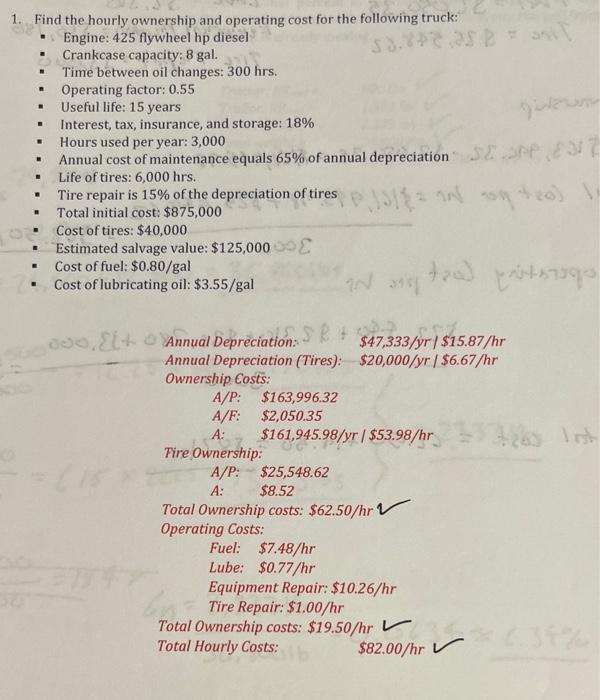 1. Find the hourly ownership and operating cost for the following truck:
▪ Engine: 425 flywheel hp diesel
▪ Crankcase capacity: 8 gal.
▪ Time between oil changes: 300 hrs.
▪ Operating factor: 0.55
▪ Useful life: 15 years
▪ Interest, tax, insurance, and storage: 18%
▪ Hours used per year: 3,000
▪ Annual cost of maintenance equals 65% of annual depreciation
▪ Life of tires: 6,000 hrs.
▪ Tire repair is 15% of the depreciation of tires
▪ Total initial cost: $875,000
▪ Cost of tires: $40,000
▪ Estimated salvage value: $125,000
▪ Cost of fuel: $0.80/gal
▪ Cost of lubricating oil: $3.55/gal
Annual Depreciation: $47,333/yr | $15.87/hr
Annual Depreciation (Tires): $20,000/yr | $6.67/hr
Ownership Costs:
A/P: $163,996.32
A/F: $2,050.35
A: $161,945.98/yr | $53.98/hr
Tire Ownership:
A/P: $25,548.62
A: $8.52
Total Ownership costs: $62.50/hr
Operating Costs:
Fuel: $7.48/hr
Lube: $0.77/hr
Equipment Repair: $10.26/hr
Tire Repair: $1.00/hr
Total Ownership costs: $19.50/hr
Total Hourly Costs: $82.00/hr